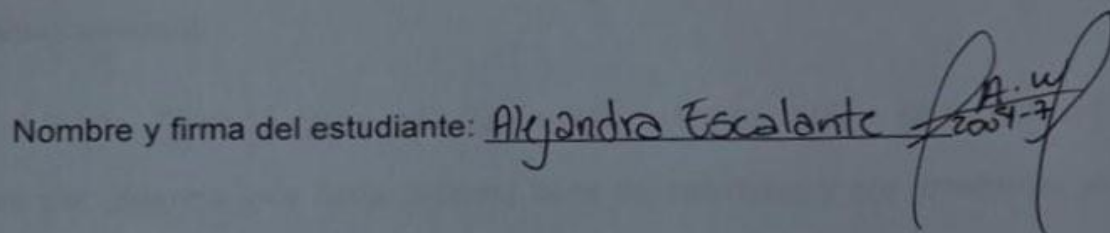 Nombre y firma del estudiante: Alejandra Escalante